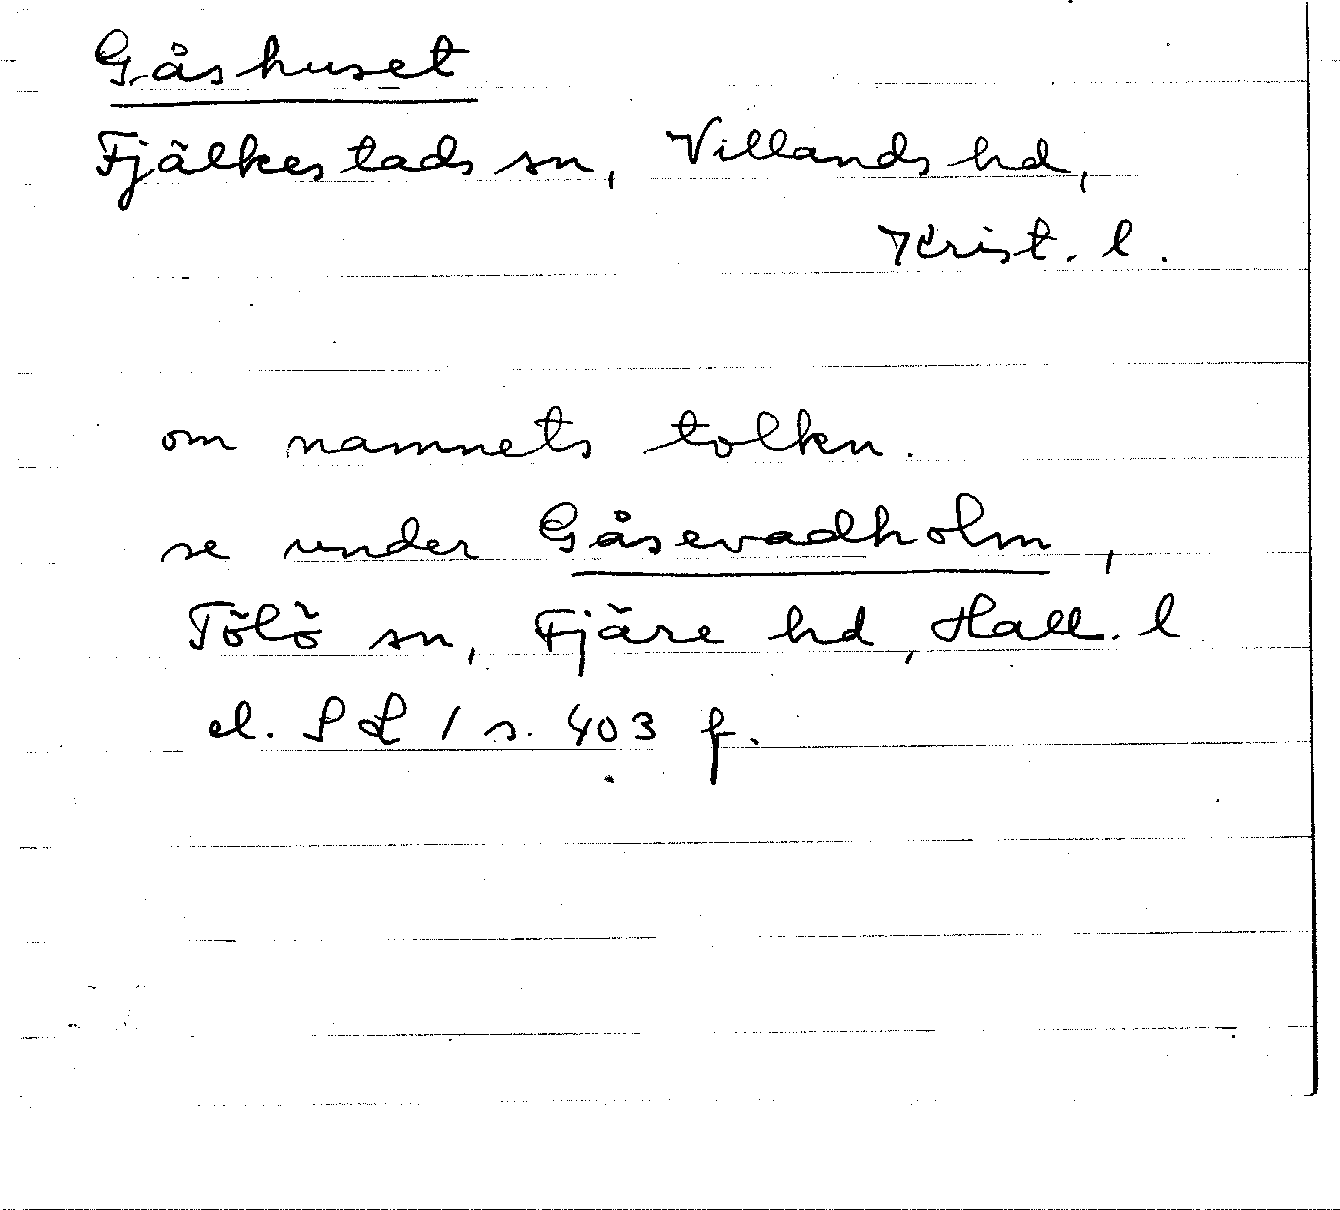 Gåshuset
Fjälkestads sn, Villands hd,
Krist. l.
om namnets tolkn.
se under Gåsevadholm,
Tölö sn, Fjäre hd, Hall. l
el. SL 1 s. 403 f.